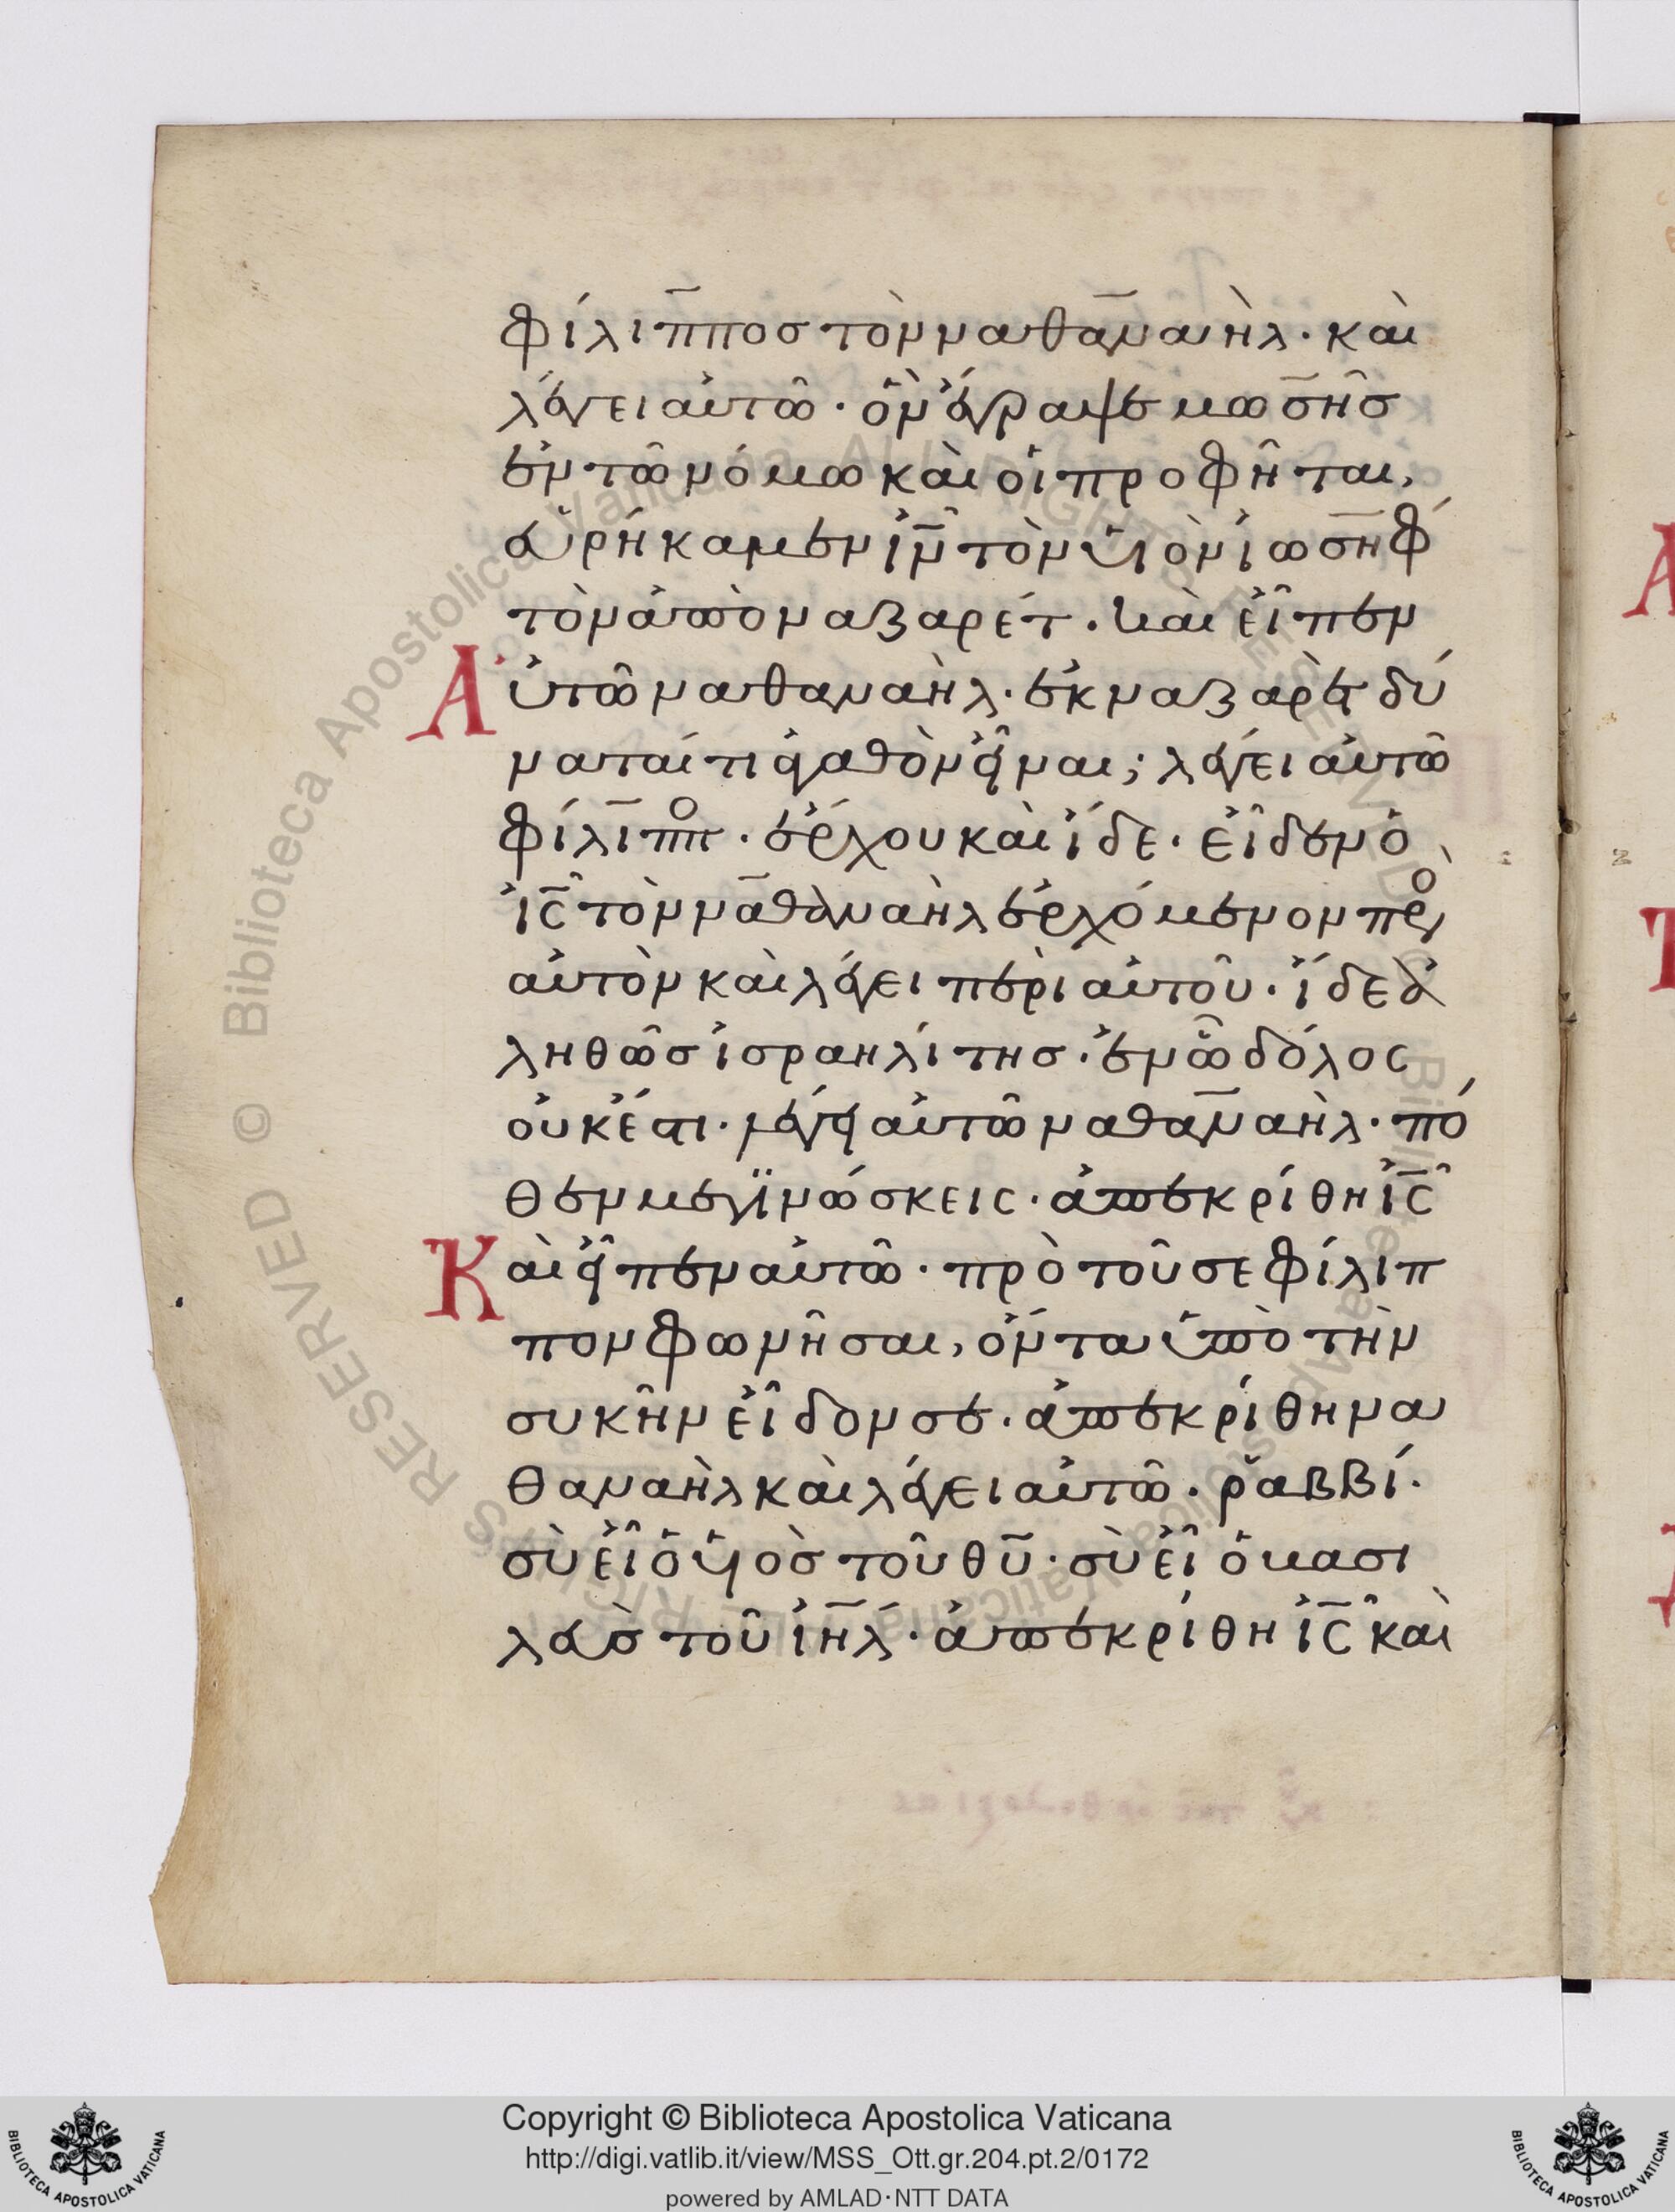 φίλιππος τὸν ναθαναὴλ· καὶ
λέγει αὐτῶ· ὃν ἔγραψε μωσῆς
ἐν τῶ νόμω καὶ οἱ προφῆται,
εὑρήκαμεν ἰν̄ τὸν ὑιὸν ἰωσὴφ
τὸν ἀπὸ ναζαρέτ. καὶ εἶπεν
Αὐτῶ ναθαναὴλ· ἐκ ναζαρὲτ δύ
ναταί τι ἀγαθὸν εἶναι; λέγει αὐτῶ
φίλιππο· ἔρχου καὶ ἴδε· εἶδεν ὁ
ἰς̄ τὸν ναθαναὴλ ἐρχόμενον πρὸ
αὐτὸν καὶ λέγει περὶ αὐτοῦ· ἴδε ἀ
ληθῶς ἰσραηλίτης· ἐν ὧ δόλος
οὐκ ἔστι· λέγει αὐτῶ ναθαναὴλ· πό
θεν με γϊνώσκεις· ἀπεκρίθη ἰς̄
Καὶ εἶπεν αὐτῶ· πρὸ τοῦ σε φίλιπ
πον φωνῆσαι, ὄντα ὑπὸ τὴν
συκῆν εἶδον σε. ἀπεκρίθη να
θαναὴλ καὶ λέγει αὐτῶ· ῥαββί·
σὺ εἶ ὁ ὑιὸς τοῦ θῡ· σὺ εἶ ὁ βασι
λεὺς τοῦ ἰηλ̄· ἀπεκρίθη ἰς̄ καὶ
Copyright © Biblioteca Apostolica Vaticana
http://digi.vatlib.it/view/MSS_Ott.gr.204.pt.2/0172
powered by AMLAD·NTT DATA
BIBLIOTECA APOSTOLICA VATICANA
BIBLIOTECA APOSTOLICA VATICANA